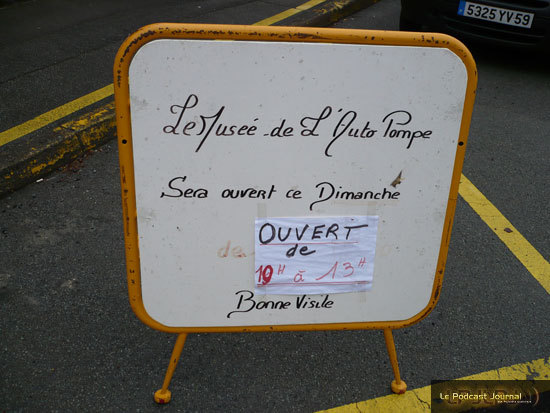 5325 YV 59
Le Musée de L'Auto Pompe
Sera ouvert ce Dimanche
de
OUVERT
de
10H à 13H
Bonne Visite
Le Podcast Journal